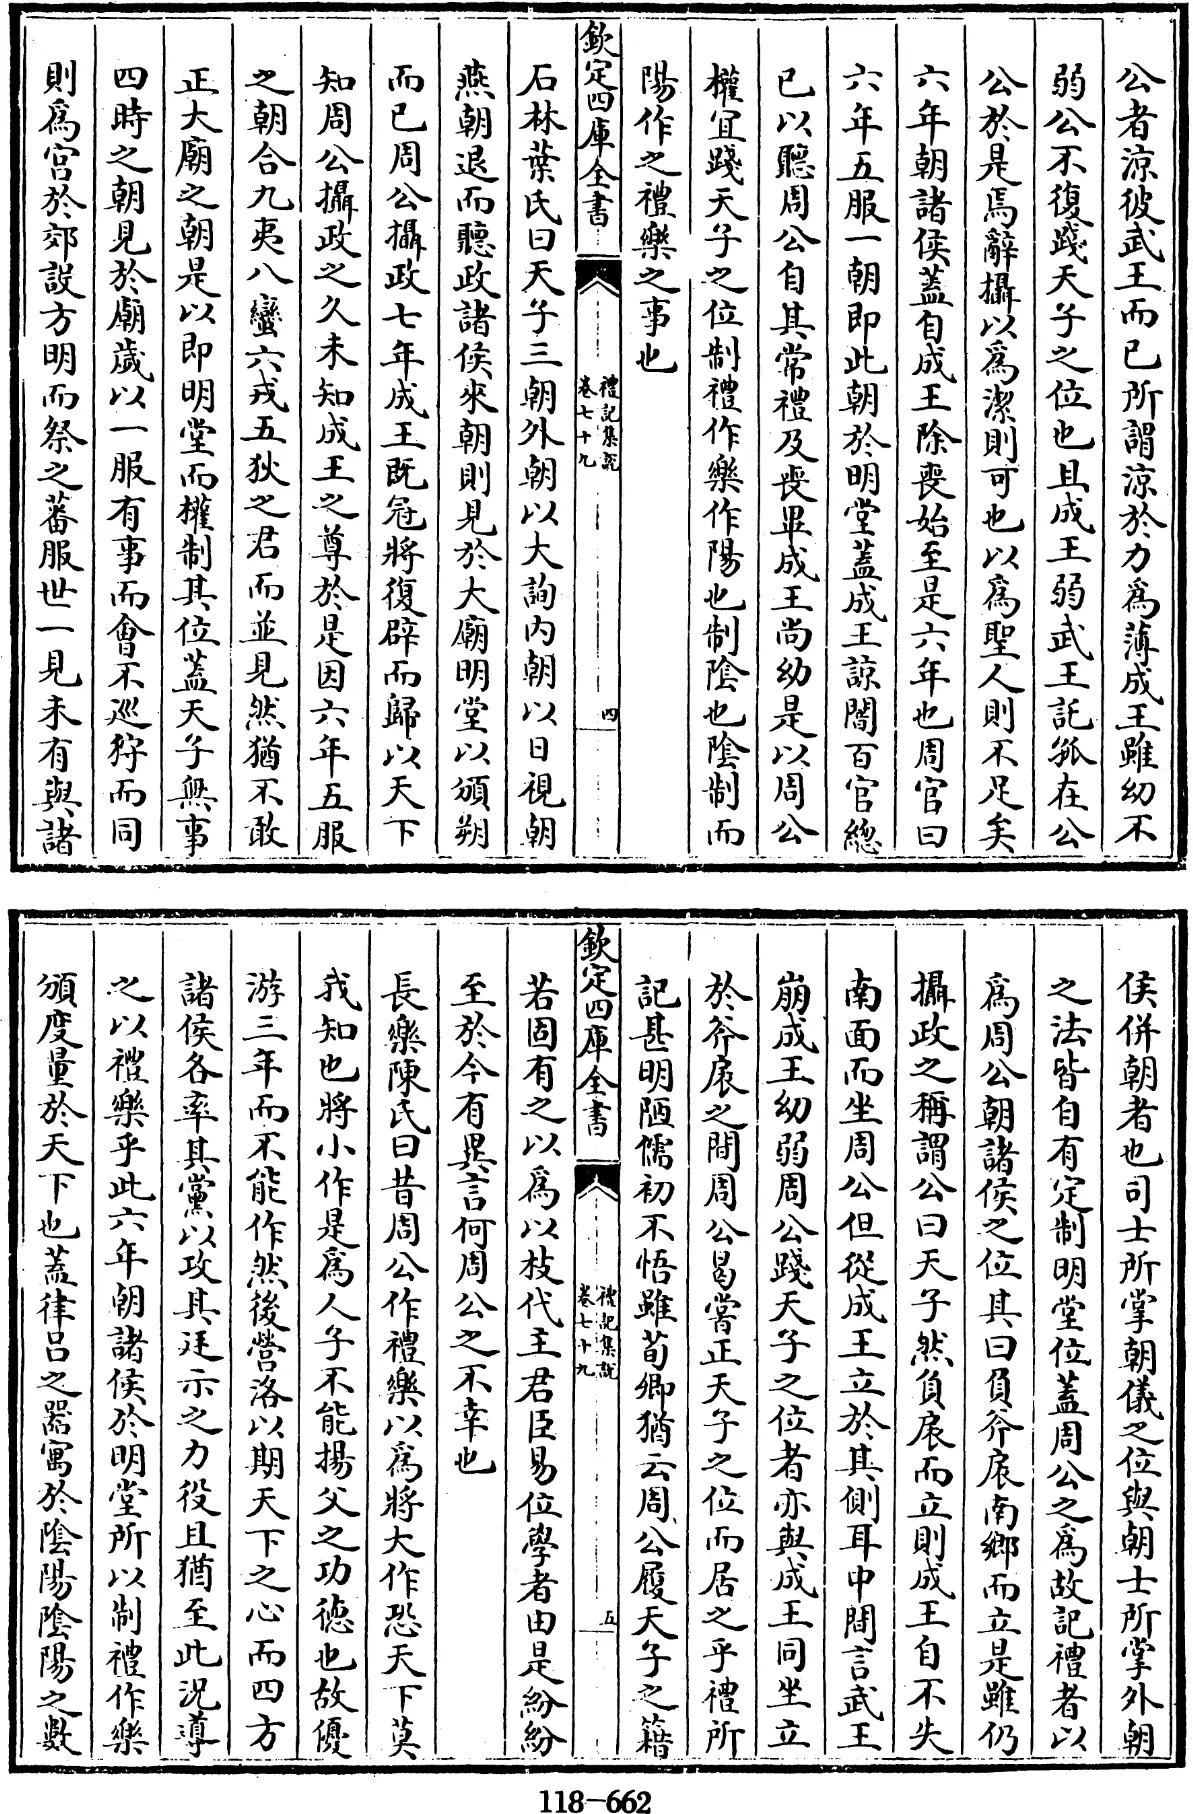 公者涼彼武王而已所謂涼於力為薄成王雖幼不
弱公不復踐天子之位也且成王弱武王託孤在公
公於是焉辭攝以為潔則可也以為聖人則不足矣
六年朝諸侯蓋自成王除喪始至是六年也周官曰
六年五服一朝即此朝於明堂蓋成王諒闇百官總
已以聽周公自其常禮及喪畢成王尚幼是以周公
權宜踐天子之位制禮作樂作陽也制陰也陰制而
陽作之禮樂之事也
欽定四庫全書
禮記集說
卷七十九
四
石林葉氏曰天子三朝外朝以大詢内朝以日視朝
燕朝退而聽政諸侯來朝則見於大廟明堂以頒朔
而已周公攝政七年成王既冠將復辟而歸以天下
知周公攝政之久未知成王之尊於是因六年五服
之朝合九夷八蠻六戎五狄之君而並見然猶不敢
正大廟之朝是以即明堂而權制其位蓋天子無事
四時之朝見於廟歲以一服有事而會不巡狩而同
則為宮於郊設方明而祭之蕃服世一見未有與諸
侯併朝者也司士所掌朝儀之位與朝士所掌外朝
之法皆自有定制明堂位蓋周公之為故記禮者以
為周公朝諸侯之位其曰負斧扆南鄉而立是雖仍
攝政之稱謂公曰天子然負扆而立則成王自不失
南面而坐周公但從成王立於其側耳中間言武王
崩成王幼弱周公踐天子之位者亦與成王同坐立
於斧扆之間周公曷嘗正天子之位而居之乎禮所
記甚明陋儒初不悟雖荀卿猶云周公履天子之籍
欽定四庫全書
禮記集說
卷七十九
五
若固有之以為以枝代主君臣易位學者由是紛紛
至於今有異言何周公之不幸也
長樂陳氏曰昔周公作禮樂以為將大作恐天下莫
我知也將小作是為人子不能揚父之功德也故優
游三年而不能作然後營洛以期天下之心而四方
諸侯各率其黨以攻其廷示之力役且猶至此況導
之以禮樂乎此六年朝諸侯於明堂所以制禮作樂
頒度量於天下也蓋律呂之器寓於陰陽陰陽之數
118-662